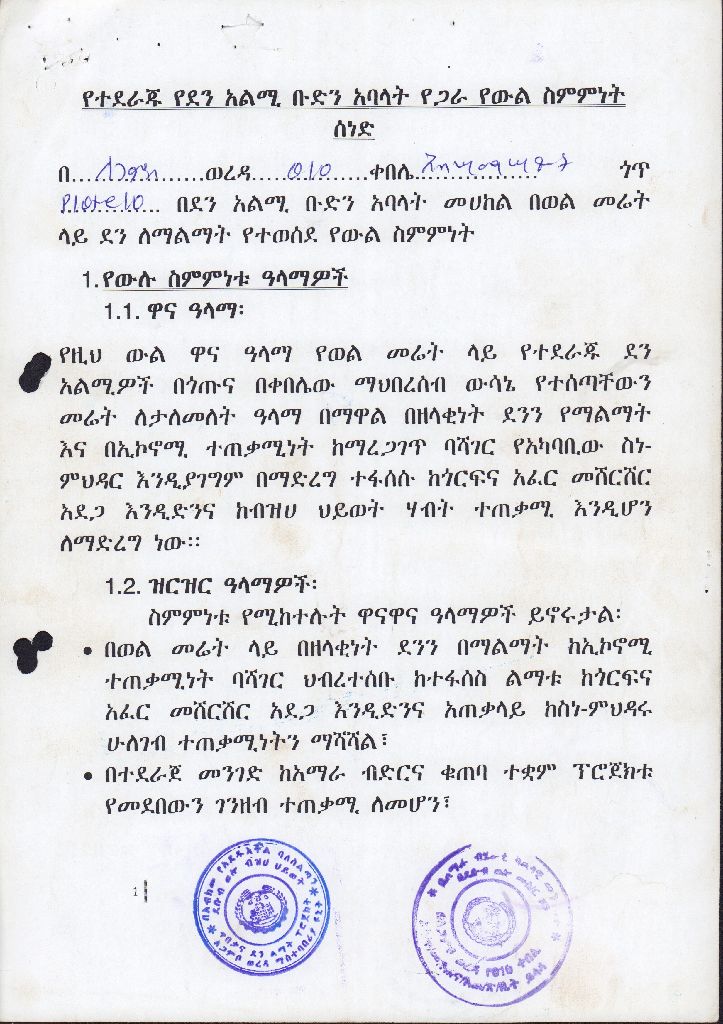 የተደራጁ የደን አልሚ ቡድን አባላት የጋራ የውል ስምምነት
ሰነድ
በ.... .......ወረዳ.... 010 .....ቀበሌ ጎጥ
በደን አልሚ ቡድን አባላት መሀከል በወል መሬት
ላይ ደን ለማልማት የተወሰደ የውል ስምምነት
1. የውሉ ስምምነቱ ዓላማዎች
1.1. ዋና ዓላማ፡
የዚህ ውል ዋና ዓላማ የወል መሬት ላይ የተደራጁ ደን
አልሚዎች በጎጡና በቀበሌው ማህበረሰብ ውሳኔ የተሰጣቸውን
መሬት ለታለመለት ዓላማ በማዋል በዘላቂነት ደንን የማልማት
እና በኢኮኖሚ ተጠቃሚነት ከማረጋገጥ ባሻገር የአካባቢው ስነ-
ምህዳር እንዲያገግም በማድረግ ተፋሰሱ ከጎርፍና አፈር መሸርሸር
አደጋ እንዲድንና ከብዝሀ ህይወት ሃብት ተጠቃሚ እንዲሆን
ለማድረግ ነው፡፡
1.2. ዝርዝር ዓላማዎች፡
ስምምነቱ የሚከተሉት ዋናዋና ዓላማዎች ይኖሩታል፡
• በወል መሬት ላይ በዘላቂነት ደንን በማልማት ከኢኮኖሚ
ተጠቃሚነት ባሻገር ህብረተሰቡ ከተፋሰስ ልማቱ ከጎርፍና
አፈር መሸርሸር አደጋ እንዲድንና አጠቃላይ ከስነ-ምህዳሩ
ሁለገብ ተጠቃሚነትን ማሻሻል፣
• በተደራጀ መንገድ ከአማራ ብድርና ቁጠባ ተቋም ፕሮጀክቱ
የመደበውን ገንዘብ ተጠቃሚ ለመሆን፣
1